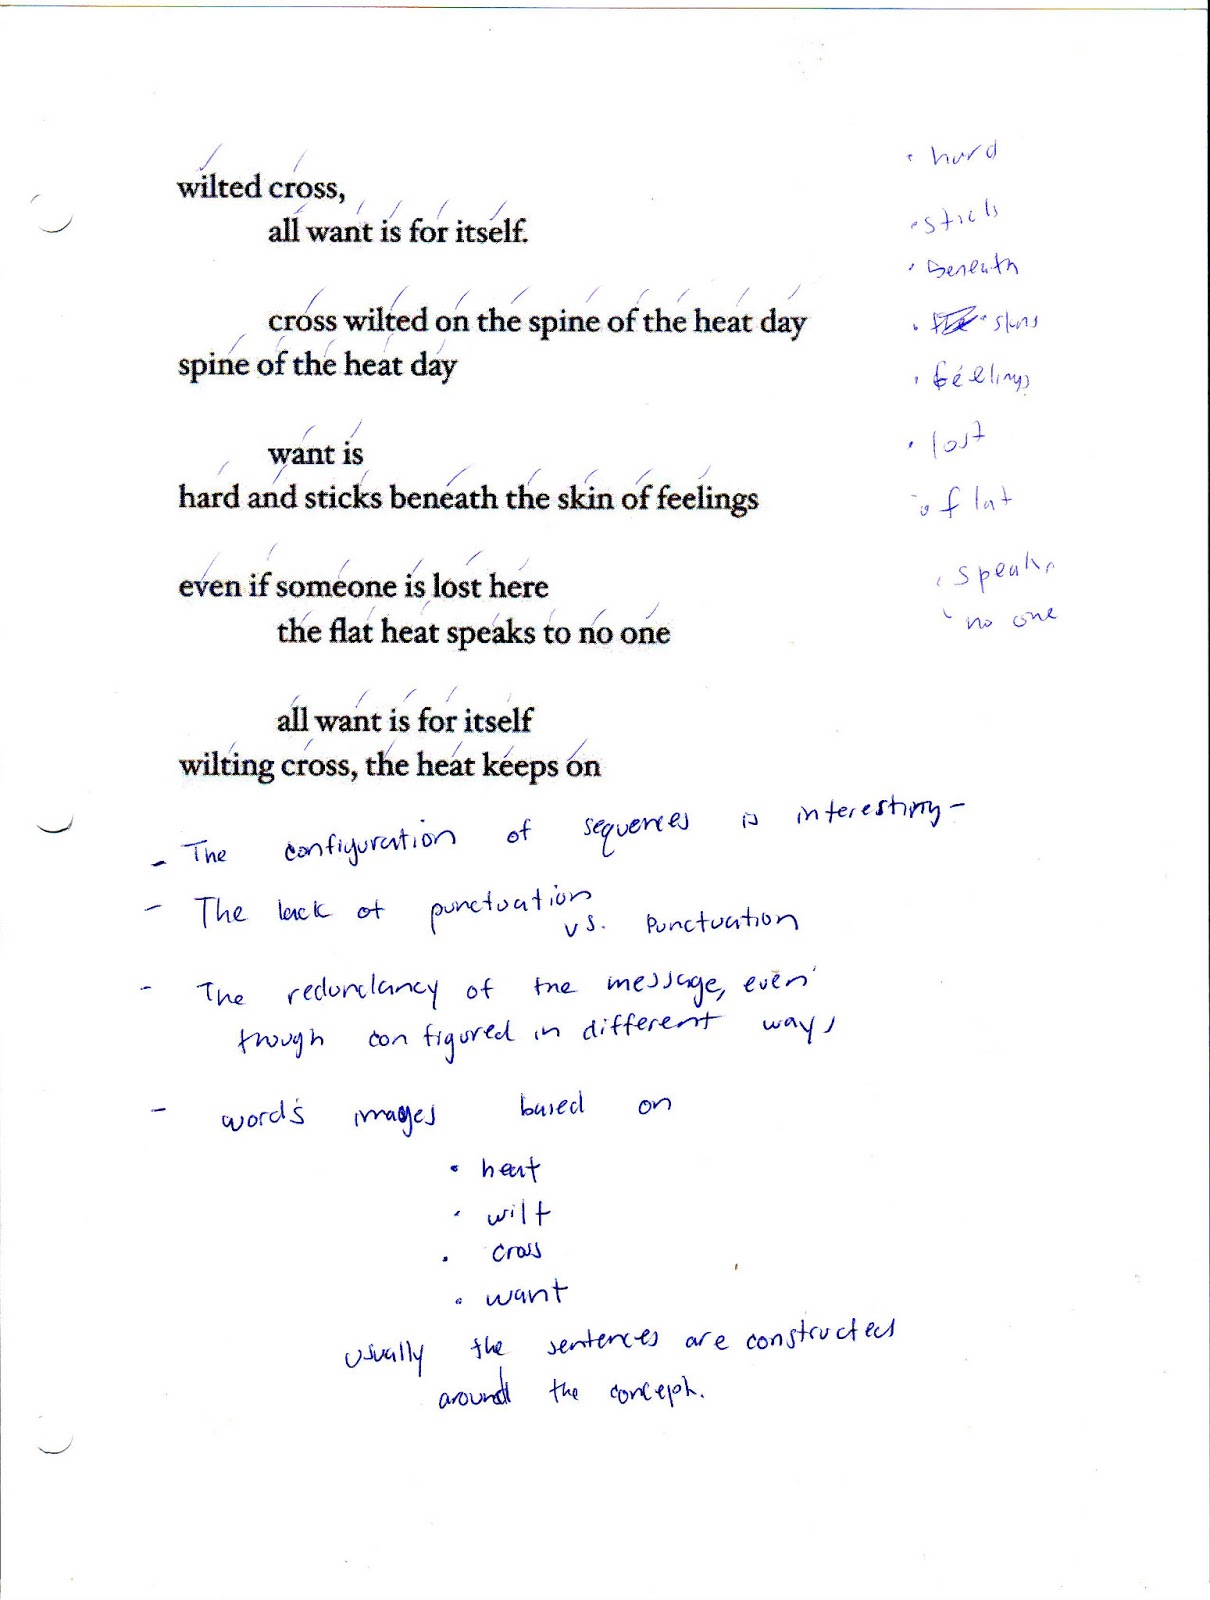 wilted cross,
all want is for itself.
cross wilted on the spine of the heat day
spine of the heat day
want is
hard and sticks beneath the skin of feelings
even if someone is lost here
the flat heat speaks to no one
all want is for itself
wilting cross, the heat keeps on
• hard
• sticks
• beneath
• skins
• feelings
• lost
• flat
• speaks
• no one
- The configuration of sequences is interesting -
- The lack of punctuation
vs. Punctuation
- The redundancy of the message, even
though configured in different ways
- words images based on
• heat
• wilt
• cross
• want
usually the sentences are constructed
around the concepts.